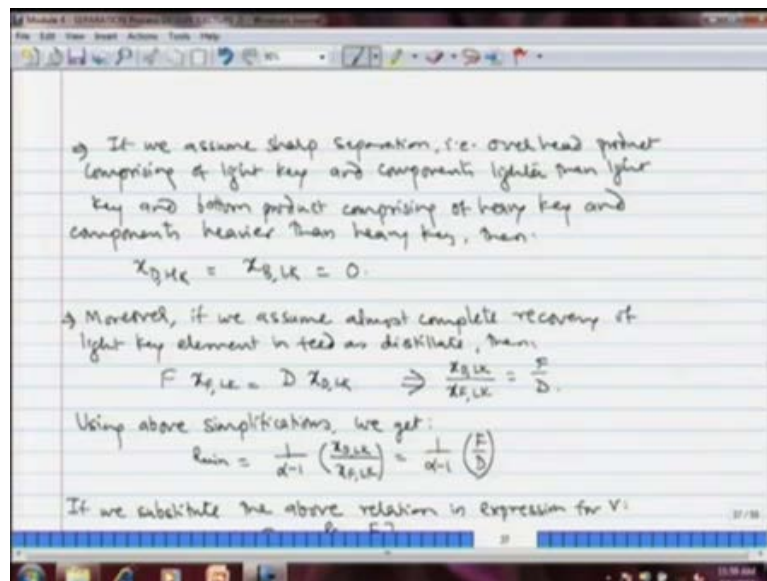 Module 4 - SEPARATION Process DESIGN (LECTURE - Windows Journal
File Edit View Insert Actions Tools Help
→ If we assume sharp separation, i.e. overhead product
comprising of light key and components lighter than light
key and bottom product comprising of heavy key and
components heavier than heavy key, then.
x_{D,HK} = x_{B,LK} = 0.
→ Moreover, if we assume almost complete recovery of
light key element in feed as distillate, then,
F x_{F,LK} = D x_{D,LK} ⇒ x_{D,LK}/x_{F,LK} = F/D.
Using above simplifications, we get:
R_{min} = 1/(α-1) (x_{D,LK}/x_{F,LK}) = 1/(α-1) (F/D)
If we substitute the above relation in expression for V:
11:56 AM